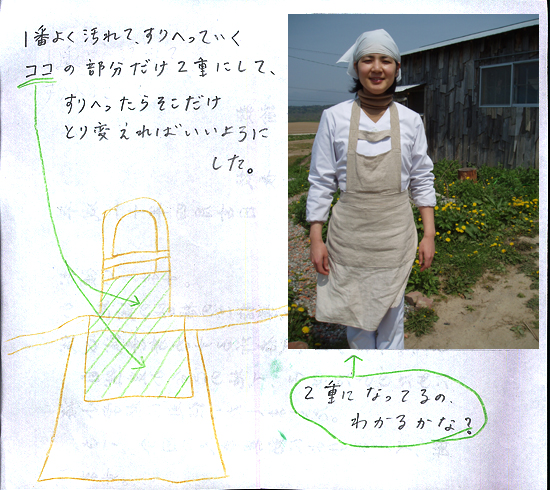 1番よく汚れて、すりへっていく
ココの部分だけ2重にして、
すりへったらそこだけ
とり変えればいいように
した。
2重になってるの、
わかるかな?